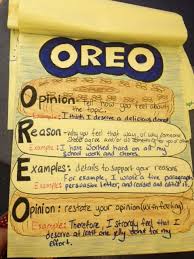 OREO
Opinion - tell how you feel about
the topic.
Example: I think I deserve a delicious donut
Reason - why you feel that way, or why someone
should agree and/or do
Example: I have worked hard on all my
school work and chores.
Examples: details to support your reasons
Example: For example, I wrote a five paragraph
persuasive letter, and revised and edited it.
Opinion: restate your opinion (with feeling)
Example: Therefore, I strongly feel that I
deserve at least one jelly donut for my
effort.